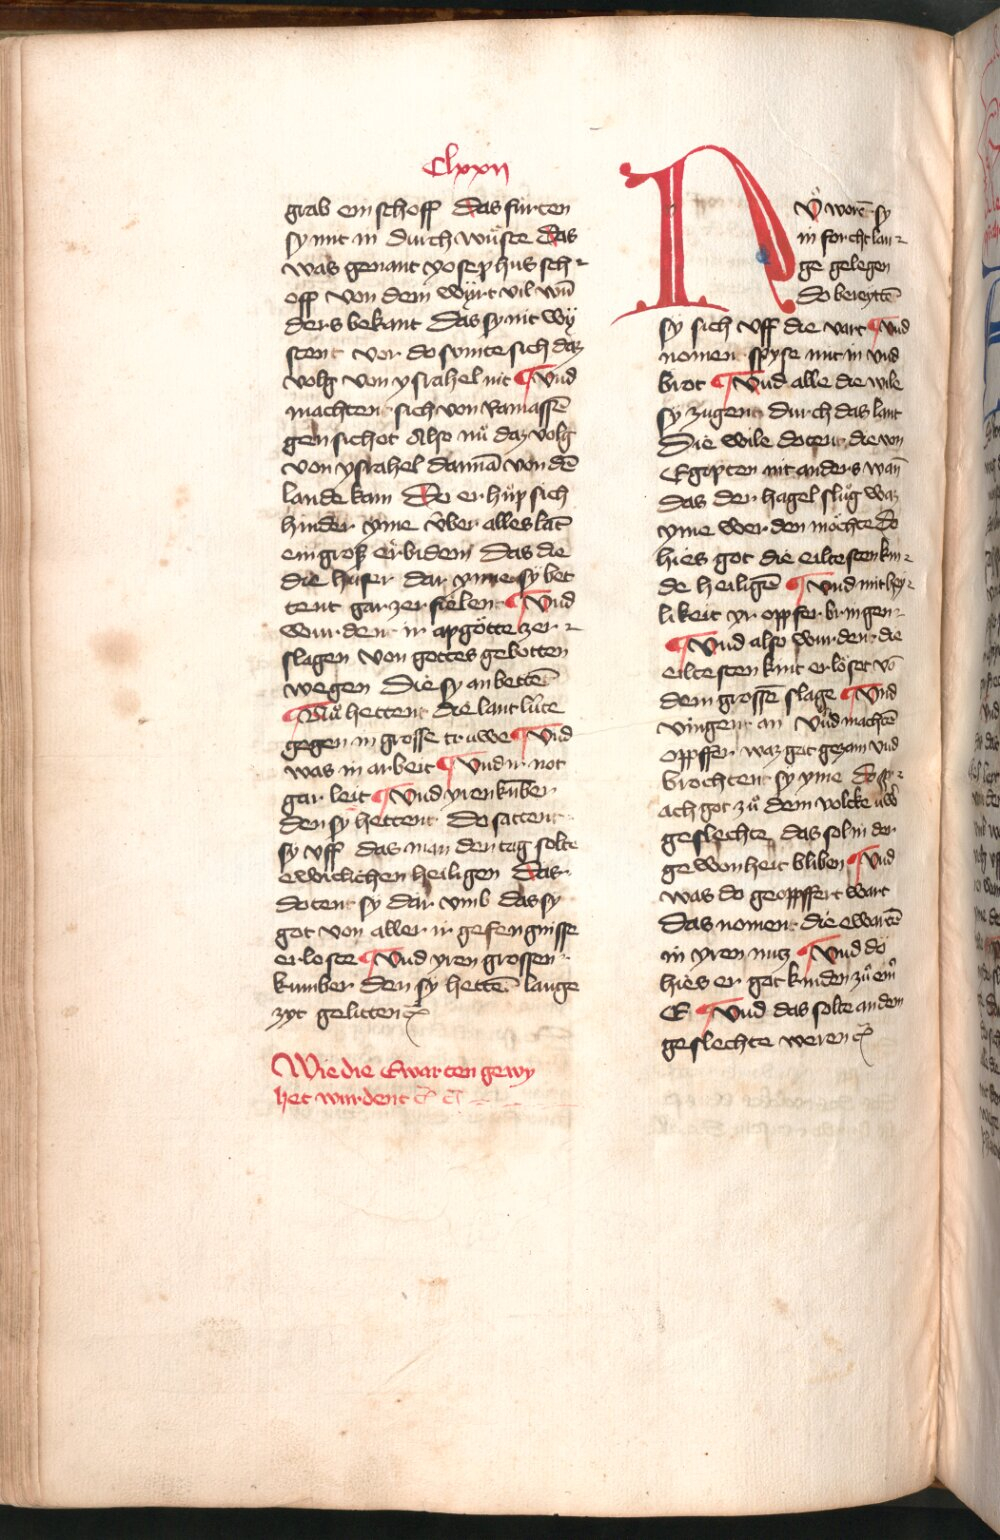 Clxxii
grab ein schoff Das furten
sy mit in durch wuͤste das
was genant yosephus sch⸗
off von dem wyrt vil wūn
ders bekant Das sy nit wy
stent vor do sumte sich daz
volg von ysrahel nit ¶ Vnd
machten sich von Ramassē
gen sichot Also nuͦ daz volg
von ysrahel dannā von dē
lande kam Do er huͦp sich
hinder yme v̊ber alles lāt
ein groß erbidem Das die
die huser dar yme sy bet
tent gar zer fielent ¶ Vnd
wurdent ir apgötte zer⸗
slagen von gottes gebotten
wegen Die sy an bettēt
¶ Nuͦ hettent die lant luͤte
gegen in grosse truwe ¶ Vnd
was in arbeit ¶ Vnd ir not
gar leit ¶ Vnd yren kūber
den sy hettent Do sattent
sy vff das man den tag solte
ewiclichen heiligen Das
dotent sy dar vmb das sy
got von aller ir gefengnisse
erloste ¶ Vnd yren grossen
kumber den sy hettēt lange
zyt gelitten
Wie die Ewarten gewy
het wurdent
NV̊ worēt sy
in forcht lan⸗
ge gelegen
do bereyttēt
sy sich vff die vart ¶ Vnd
nomen spyse mit in vnd
brot ¶ Vnd alle die wile
sy zugent durch das lant
Die wile dotent die von
Egipten nit anders wan̄
das der hagel sluͦg waz
yme werden möchte Do
hies got die eiltesten kin⸗
de heiligē ¶ Vnd mit hey⸗
likeit yr opfer bringen
¶ Vnd also wurdent die
eiltesten kint erlöset vō
dem grossē slage ¶ Vnd
vingent an vn̄d machtē
opffer waz got gezam vnd
brochtent sy yme do spr⸗
ach got zuͦ dem volcke
geslechte das sol in der
gewonheit bliben ¶ Vnd
was do geopffert wart
Das noment die ewartē
in yren nutz ¶ Vnd do
hies er got kinden zuͦ
E ¶ Vnd das solte an dem
geslechte weren